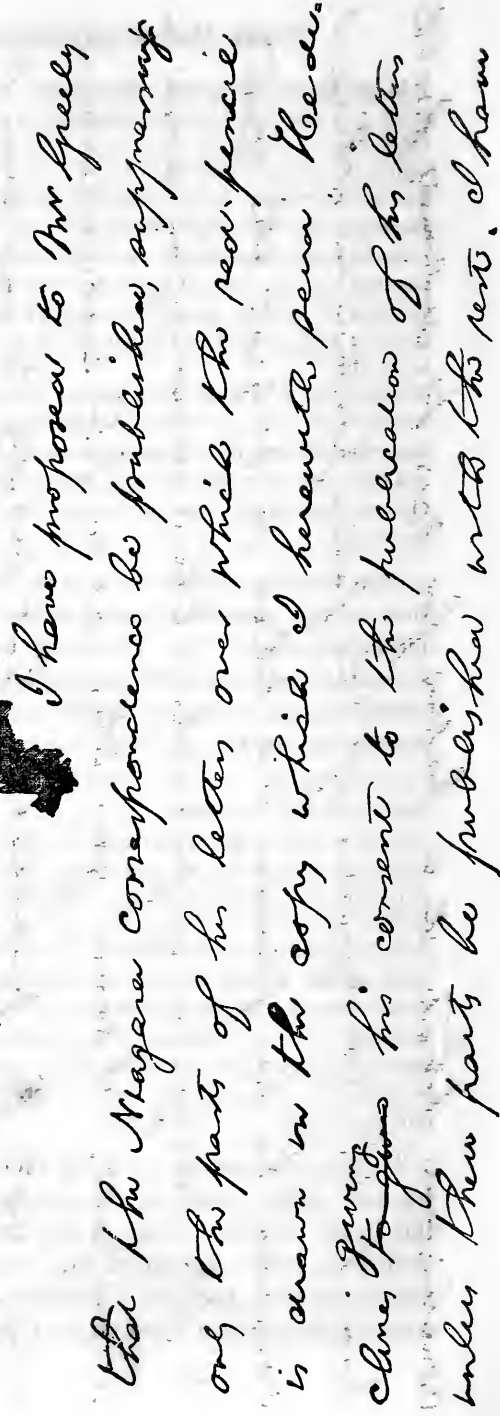 I have proposed to Mr Greely
that the Niagara correspondence be published, suppressing
only the parts of his letters over which the red-pencil
is drawn in the copy which I herewith send. He de-
clines giving to give his consent to the publication of his letters
unless these parts be published with the rest. I have